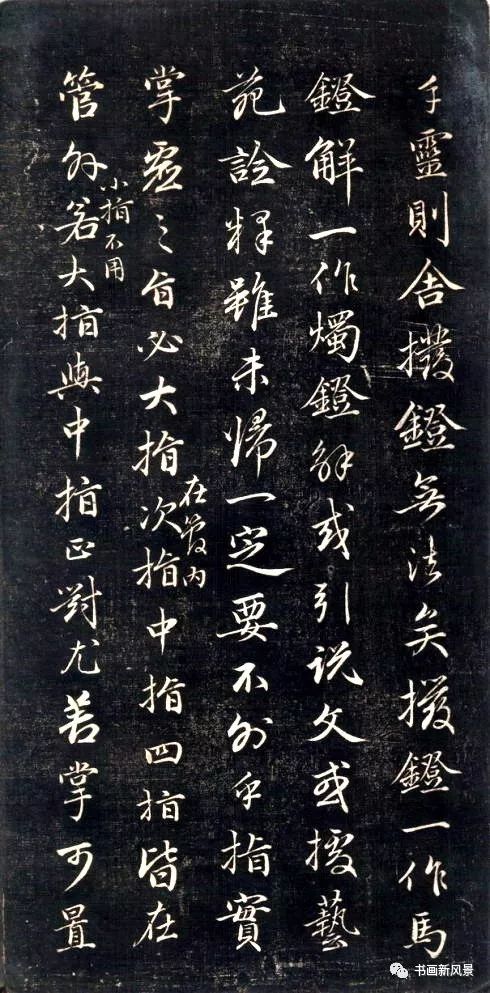 手靈則舍撥鐙無法矣撥鐙一作馬
鐙解一作燭鐙解或引説文或據藝
苑詮釋雖未歸一定要不外乎指實
掌虛之旨必大指次指中指四指皆在
在管内
管外若大指與中指正對尤善掌可置
小指不用
书画新风景